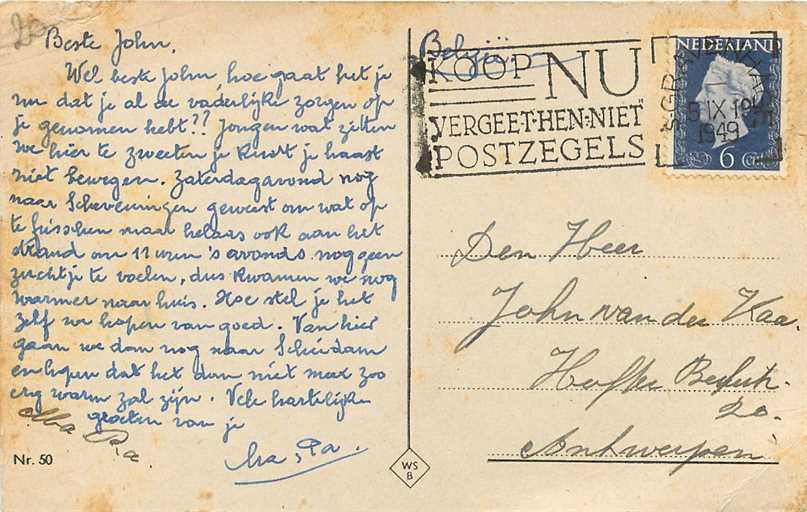 20
Beste John,
Wel beste John hoe gaat het je
nu dat je al de vaderlijke zorgen op
je genomen hebt?? Jongen wat zitten
we hier te zweeten je kunt je haast
niet bewegen. Zaterdagavond nog
naar Scheveningen geweest om wat op
te frisschen maar helaas ook aan het
strand om 11 uren 's avonds nog geen
zuchtje te voelen, dus kwamen we nog
warmer naar huis. Hoe stel je het
zelf we hopen van goed. Van hier
gaan we dan nog naar Schiedam
en hopen dat het dan niet meer zoo
erg warm zal zijn. Vele hartelijke
groeten van je
Ma, Pa.
Nr. 50
WS
B
België
KOOP NU
VERGEET·HEN·NIET
POSTZEGELS
NEDERLAND
6 CT
5 IX
1949
Den Heer
John van der Kaa.
20.
Antwerpen